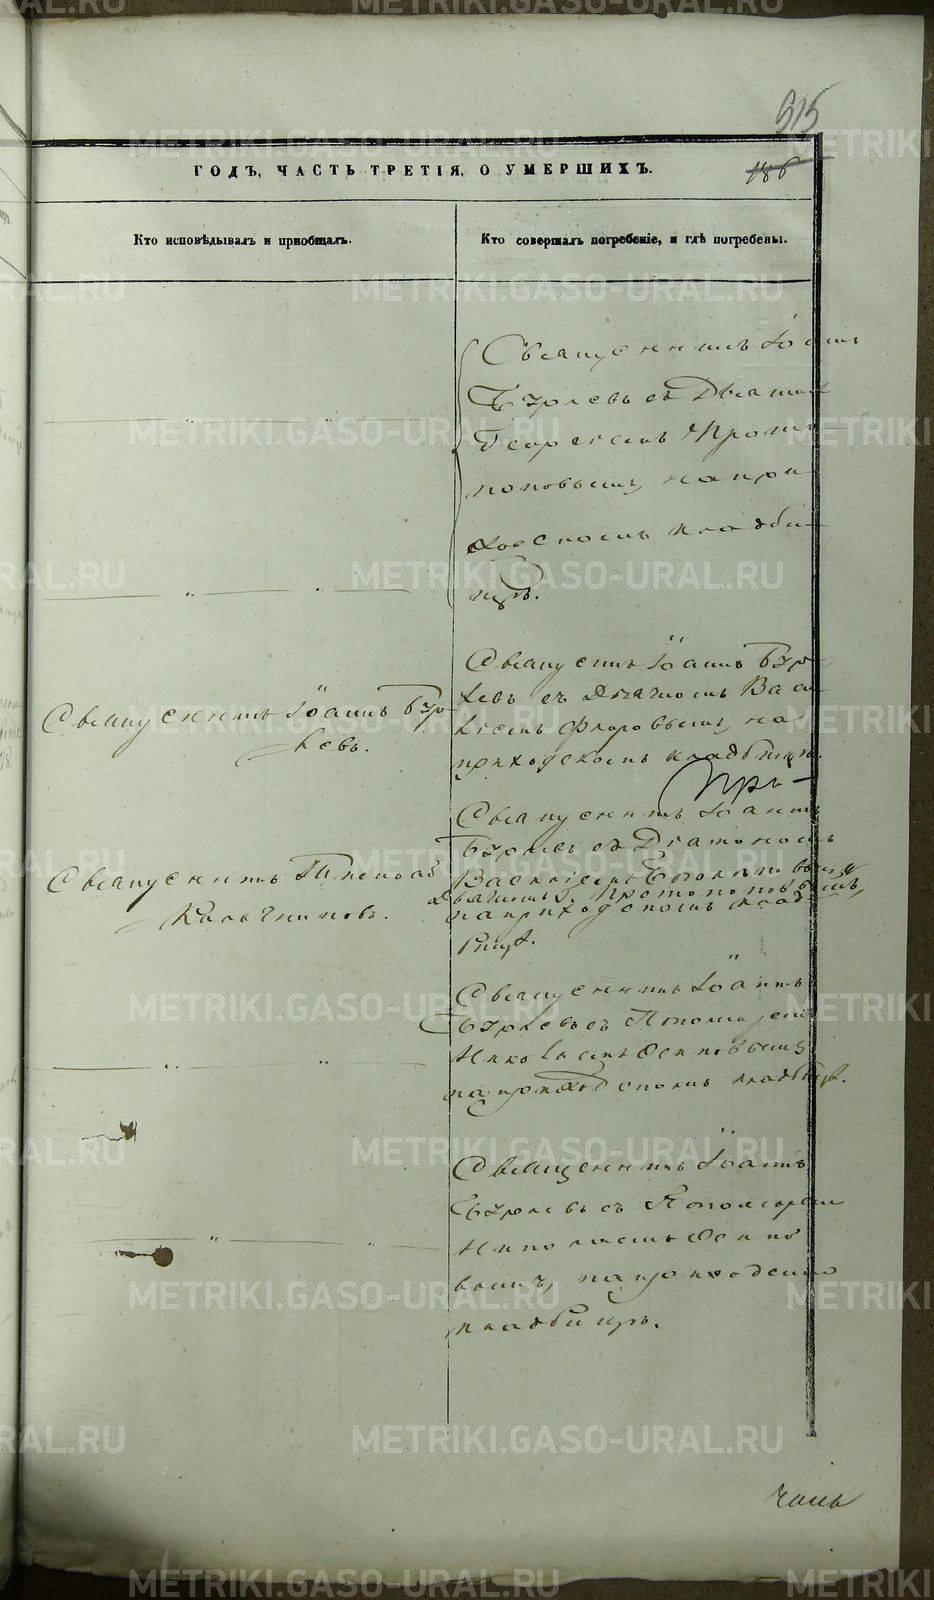 515
186
ГОДЪ, ЧАСТЬ ТРЕТІЯ, О УМЕРШИХЪ.
Кто исповѣдывалъ и приобщалъ.
Кто совершалъ погребеніе, и гдѣ погребены.
Священникъ Іоаннъ
съ Дьячк
Георгіемъ Прото
поповымъ, на при
ходскомъ кладби
щѣ.
Священникъ Іоаннъ
Священникъ Іоаннъ
съ Дьячкомъ Васи
ліемъ Флоровымъ, на
приходскомъ кладбищѣ.
Священникъ Іоаннъ
съ Діакономъ
Священникъ
Калачниковъ.
Василіемъ
Дьячкомъ Протопоповымъ,
на приходскомъ клад
бищѣ.
Священникъ Іоаннъ
съ Пономаремъ
Николаемъ Осиповымъ
на приходскомъ кладбищѣ.
Священникъ Іоаннъ
съ Пономаремъ
Николаемъ Осипо
вымъ, на приходском
кладбищѣ.
METRIKI.GASO-URAL.RU